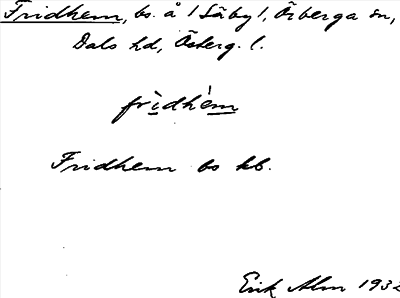 Fridhem, bs. å 1 Säby 1, Örberga sn,
Dals hd, Österg. l.
frìdhèm
Fridhem bs kb.
Erik Alm 1932